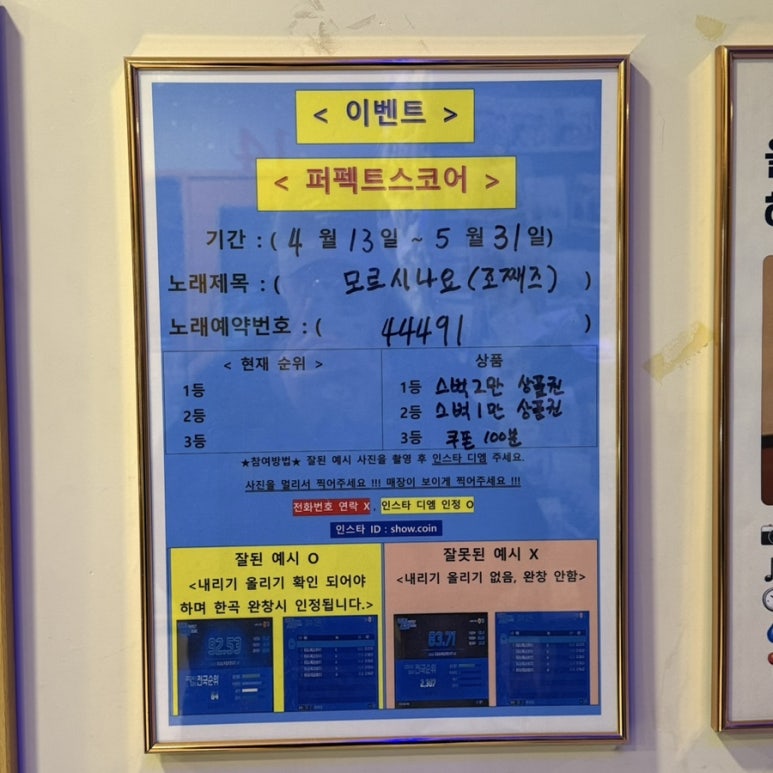 < 이벤트 >
< 퍼펙트스코어 >
기간 : ( 4 월 13일 ~ 5 월 31일)
노래제목 : ( 모르시나요(조째즈) )
노래예약번호 : ( 44491 )
< 현재 순위 >
1등
2등
3등
상품
1등 스벅 2만 상품권
2등 스벅 1만 상품권
3등 쿠폰 100분
★참여방법★ 잘된 예시 사진을 촬영 후 인스타 디엠 주세요.
사진을 멀리서 찍어주세요 !!! 매장이 보이게 찍어주세요 !!!
전화번호 연락 X , 인스타 디엠 인정 O
인스타 ID : show.coin
잘된 예시 O
<내리기 올리기 확인 되어야
하며 한곡 완창시 인정됩니다.>
92.53
전국순위
잘못된 예시 X
<내리기 올리기 없음, 완창 안함>
83.71
전국순위
2,307